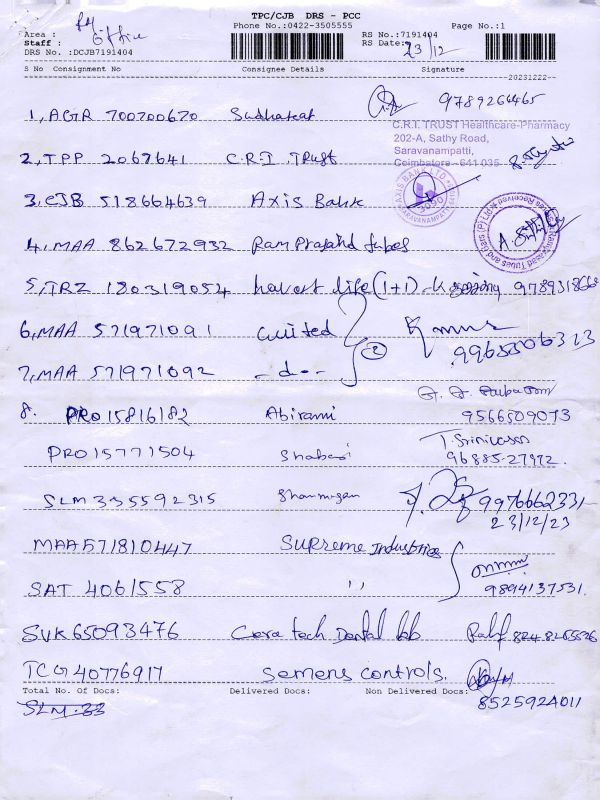 TPC/CJB DRS - PCC
Phone No.:0422-3505555 Page No.:1
Area : Office
Staff :
RS No.:7191404
DRS No. :DCJB7191404 RS Date: 23/12
S No Consignment No Consignee Details Signature
20231222
1, AGR 700700670 9789266465
C.R.I. TRUST Healthcare-Pharmacy
202-A, Sathy Road,
Saravanampatti,
Coimbatore - 641 035
2, TPP 2067641 C.R.I. Trust
3, CJB 518664639 Axis Bank
4, MAA 862672932 Ram Prajaind Tubes
5, TRZ 180319054 life (1+1) 9789318668
6, MAA 571971091 United Kannan
9965306323
7, MAA 571971092 - do - 2
8. PRO 15816182 Abirami 9566509073
PRO 15771504 Shabari T. Srinivasan
96885-27972.
SLM 335592315 Shanmugan 9976662331
23/12/23
MAA 571810447 Supreme Industries
SAT 4061558 ,, 9894137531.
SVK 65093476 Cera tech Dental lab
TCG 40776917 Semens controls.
Total No. Of Docs: Delivered Docs: Non Delivered Docs:
SLM 33 8525924011